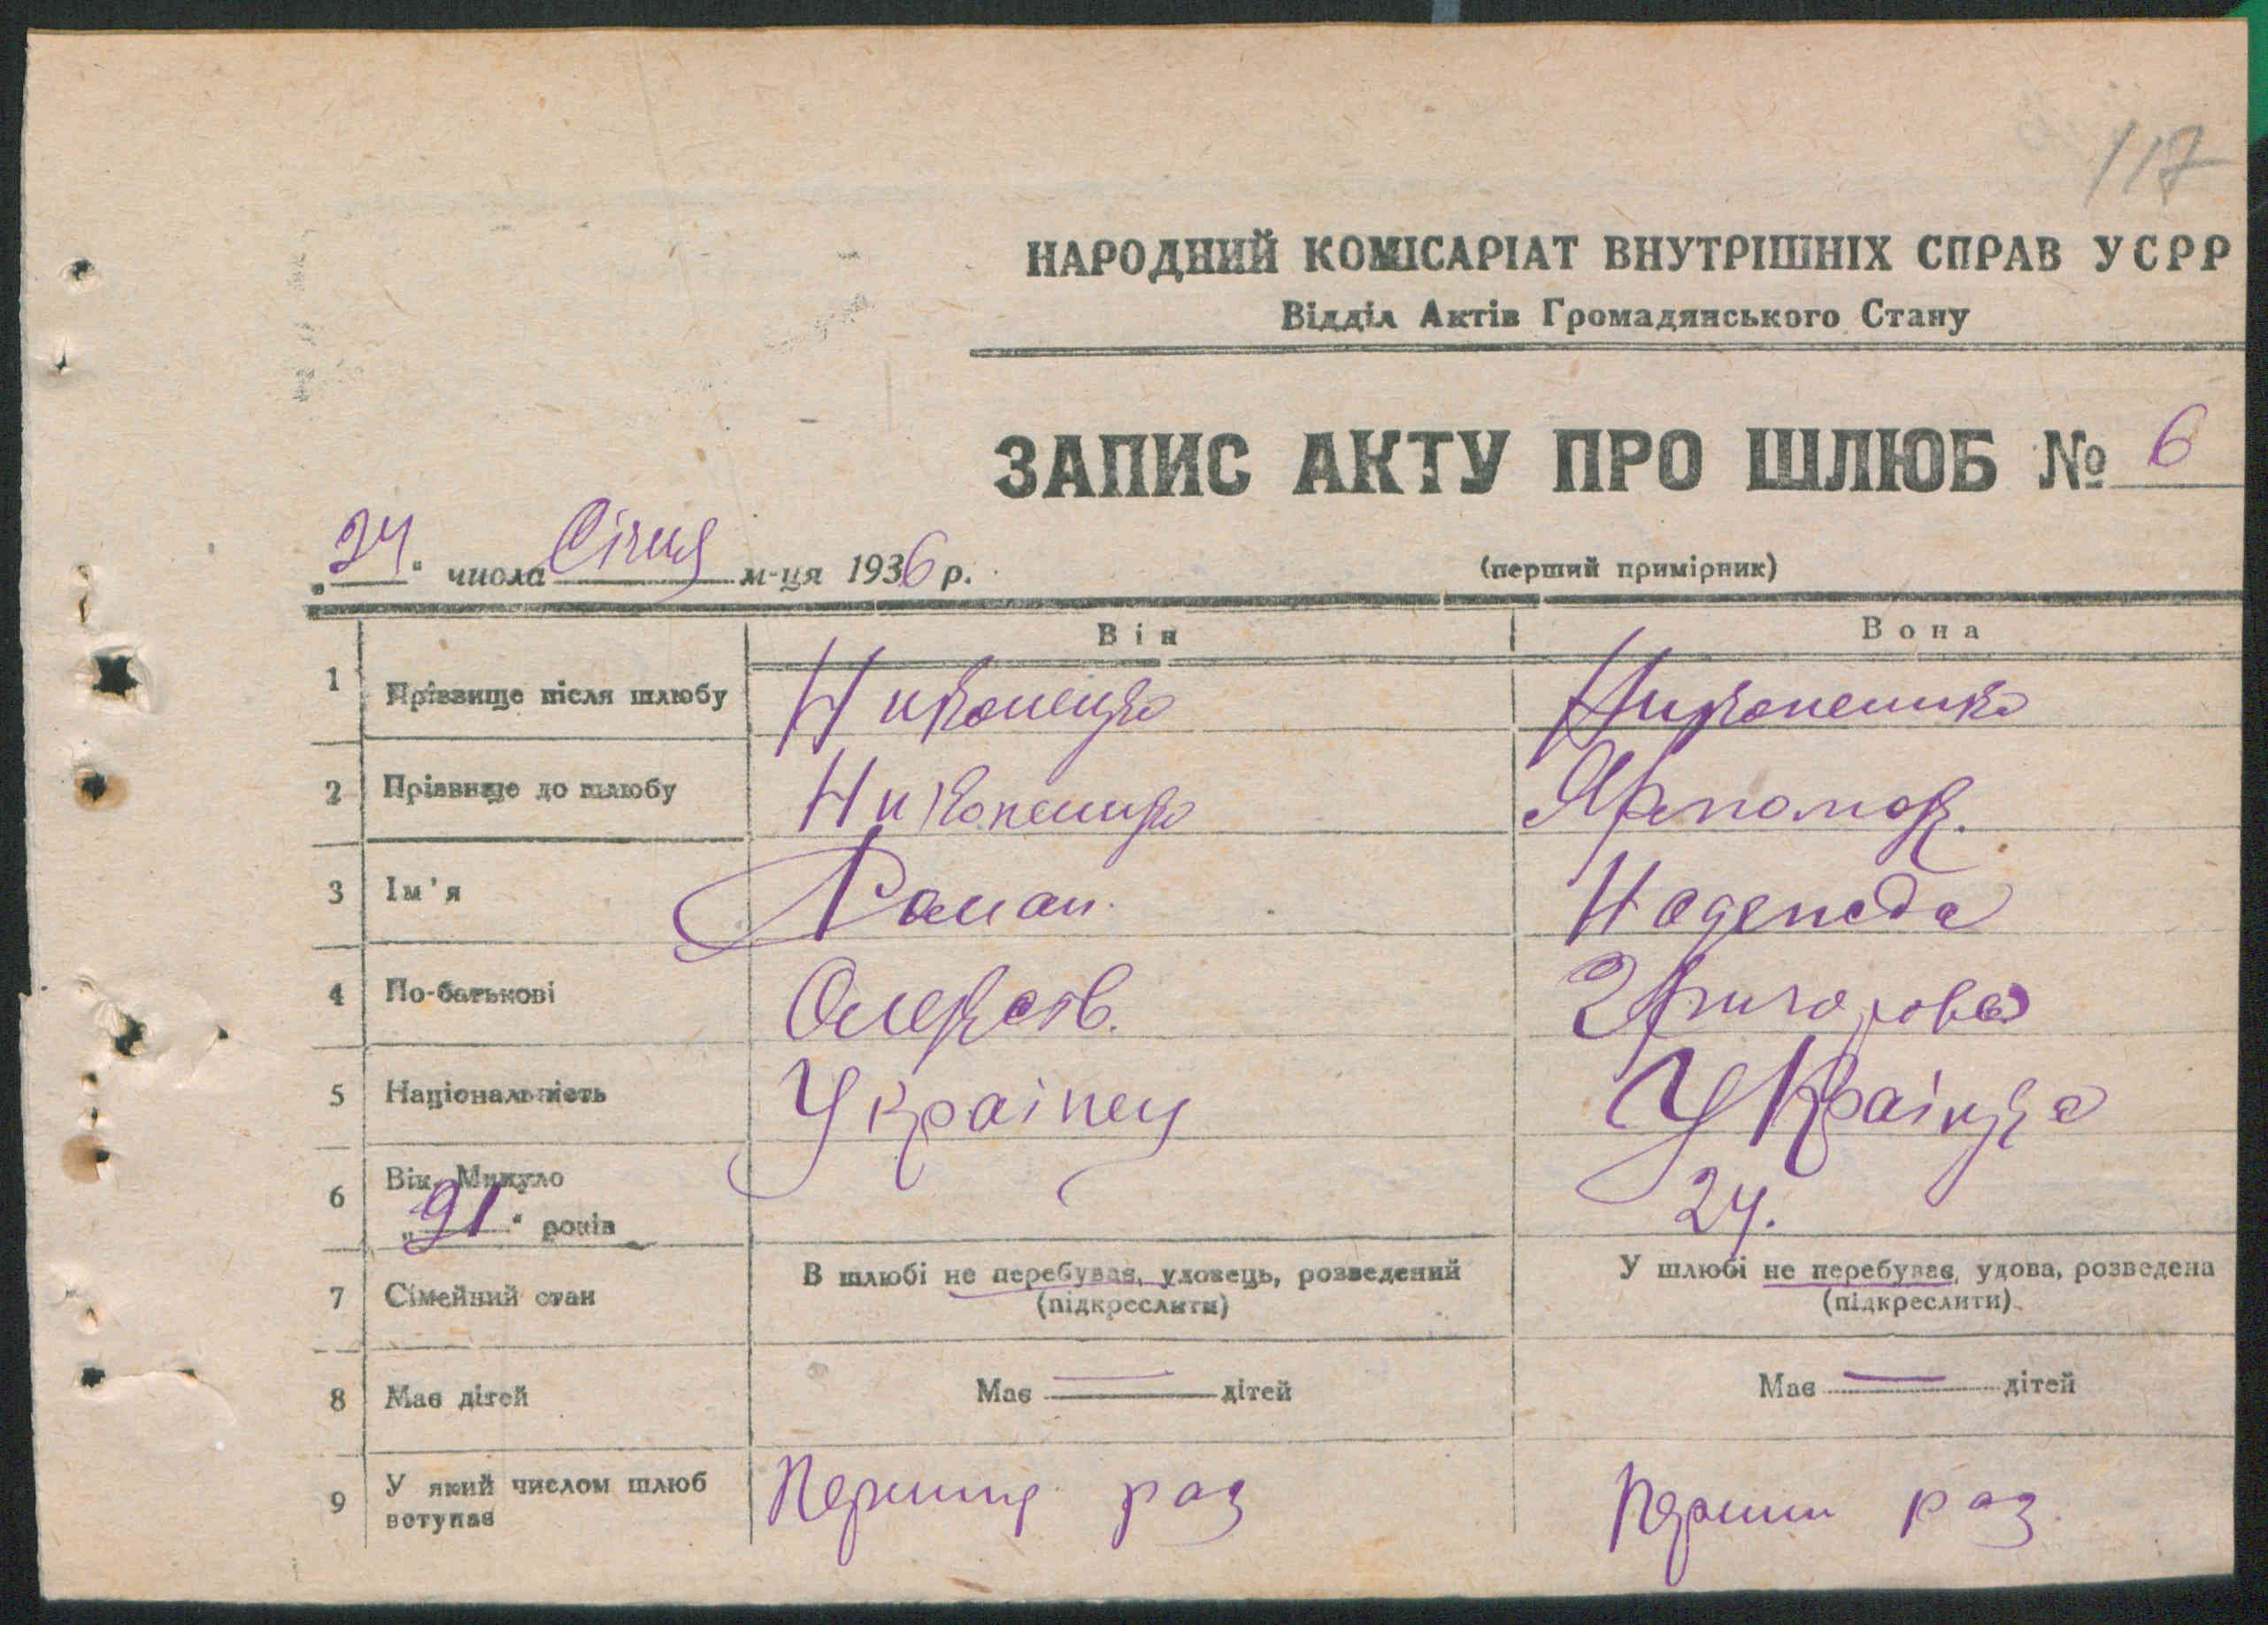 117
НАРОДНИЙ КОМІСАРІАТ ВНУТРІШНІХ СПРАВ УСРР
Відділ Актів Громадянського Стану
ЗАПИС АКТУ ПРО ШЛЮБ № 6
„24" числа Січня м-ця 1936 р.
(перший примірник)
Він
Вона
1 Прізвище після шлюбу
2 Прізвище до шлюбу
3 Ім'я Роман. Надежда
4 По-батькові Олексов. Григоровна
5 Національність Українец Українка
6 Вік. Минуло
„21" років 24.
7 Сімейний стан В шлюбі не перебував, удовець, розведений У шлюбі не перебуває, удова, розведена
(підкреслити) (підкреслити)
8 Має дітей Має — дітей Має — дітей
9 У який числом шлюб Перший раз Перший раз.
вступає